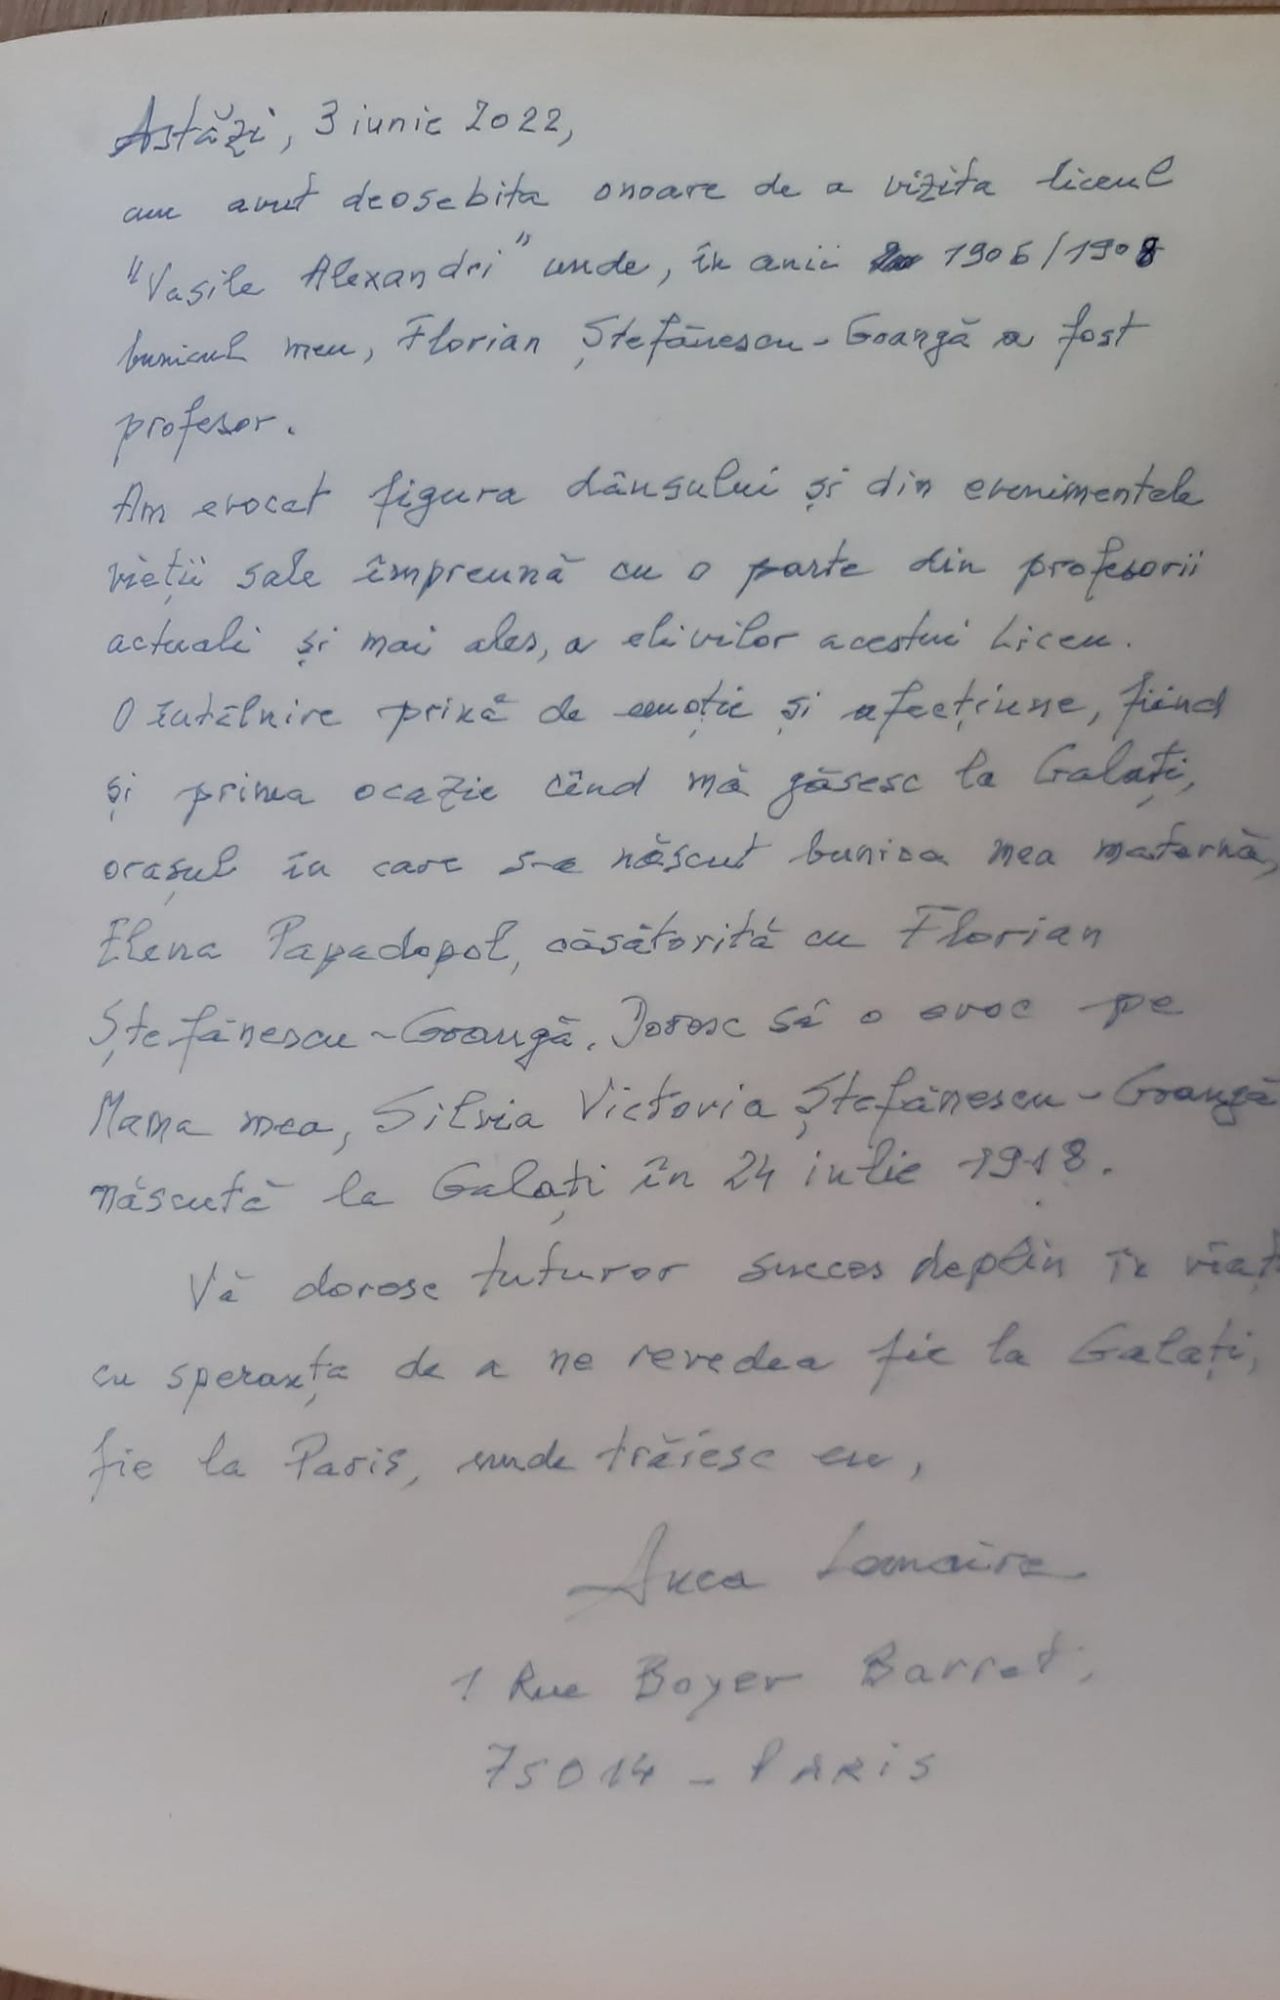 Astăzi, 3 iunie 2022,
am avut deosebita onoare de a vizita liceul
"Vasile Alexandri" unde, în anii 1906/1908
bunicul meu, Florian Ștefănescu-Goangă a fost
profesor.
Am evocat figura dânsului și din evenimentele
vieții sale împreună cu o parte din profesorii
actuali și mai ales, a elevilor acestui Liceu.
O întâlnire prină de emoție și afecțiune, fiind
și prima ocazie când mă găsesc la Galați,
orașul în care s-a născut bunica mea maternă,
Elena Papadopol, căsătorită cu Florian
Ștefănescu-Goangă. Doresc să o evoc pe
Mama mea, Silvia Victoria Ștefănescu-Goangă
născută la Galați în 24 iulie 1918.
Vă doresc tuturor succes deplin în viaț
cu speranța de a ne revedea fie la Galați,
fie la Paris, unde trăiesc eu,
Anca Lemaire
1 Rue Boyer Barret,
75014 - PARIS